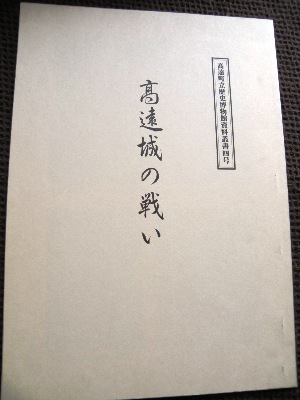 高遠町立歴史博物館資料叢書四号
高遠城の戦い